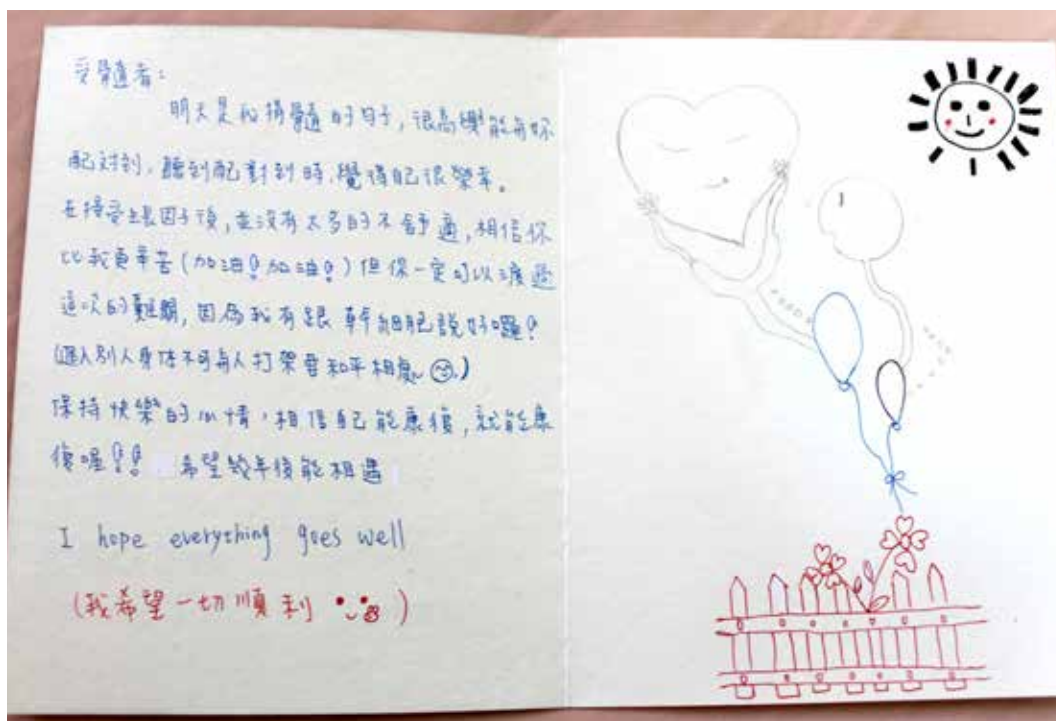 受髓者：
明天是我捐髓的日子，很高興能與妳
配對到，聽到配對到時，覺得自己很榮幸。
在接受生長因子後，並沒有太多的不舒適，相信你
比我更辛苦(加油！加油！)但你一定可以渡過
這次的難關，因為我有跟幹細胞說好囉！
(進入別人身体不可與人打架要和平相處~)
保持快樂的心情，相信自己能康復，就能康
復喔！！ 希望幾年後能相遇
I hope everything goes well
(我希望一切順利)